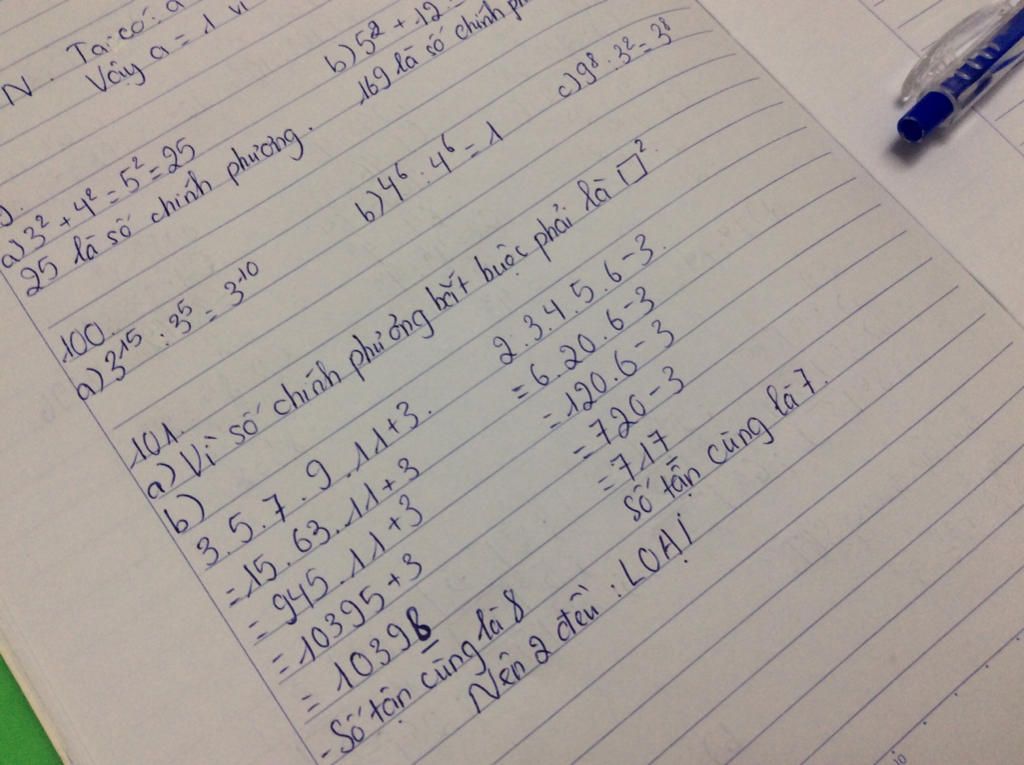 N. Ta có: a
Vậy a = 1 v
a) 3² + 4² = 5² = 25
25 là số chính phương.
b) 5² + 12
169 là số chính ph
100.
a) 3¹⁵ : 3⁵ = 3¹⁰
b) 4⁶ : 4⁶ = 1
c) 9⁸ : 3² = 3⁸
101.
a) Vì số chính phương bắt buộc phải là □².
b)
3.5.7.9.11+3.
= 15.63.11+3
= 945.11+3
= 10395+3
= 10398
- Số tận cùng là 8
2.3.4.5.6-3.
= 6.20.6-3
= 120.6-3
= 720-3
= 717
Số tận cùng là 7.
Nên 2 đều: LOẠI